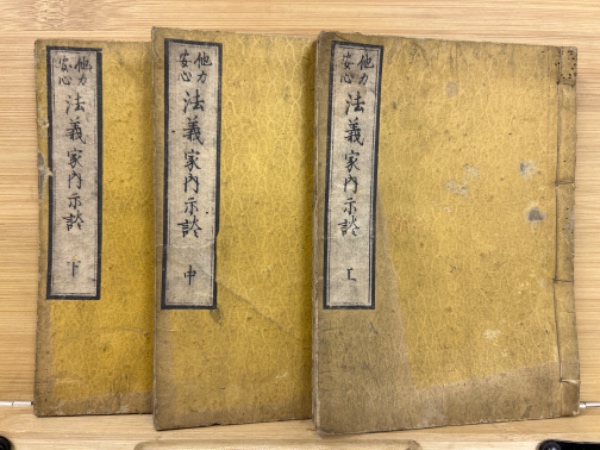 他力
安心
法義家内示談
上
他力
安心
法義家内示談
中
他力
安心
法義家内示談
下